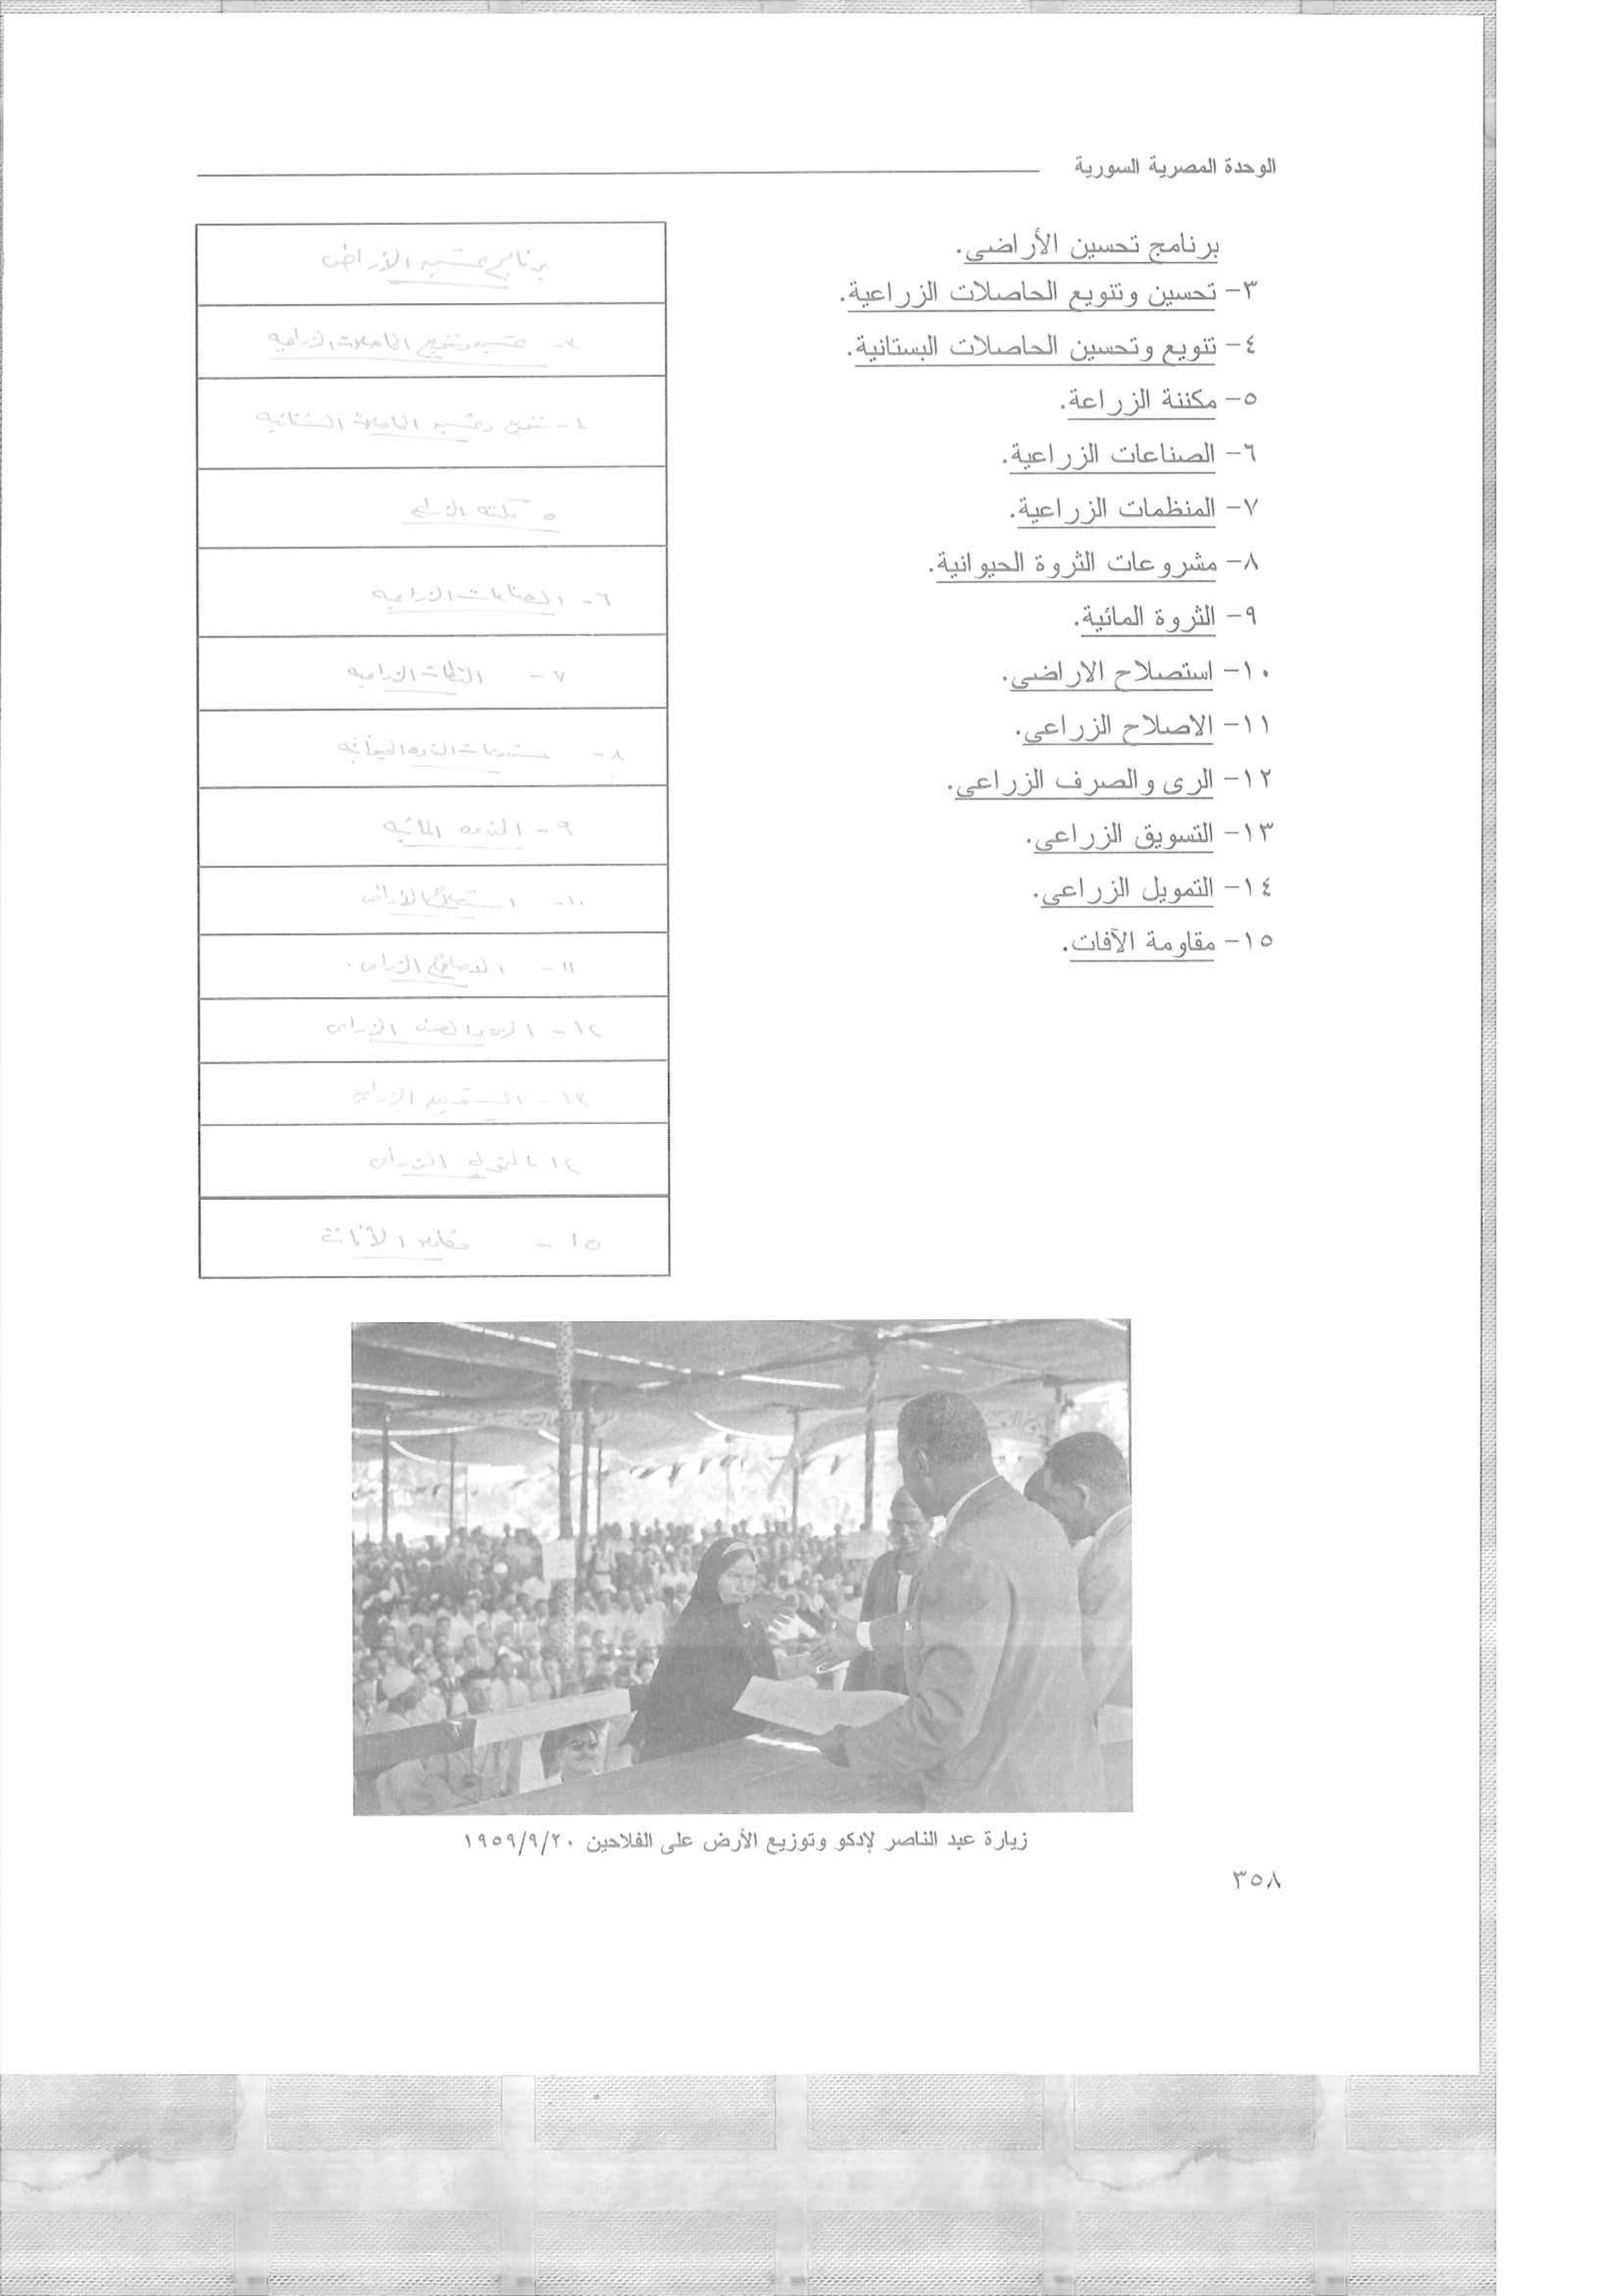 الوحدة المصرية السورية
برنامج تحسين الأراضى.
٣- تحسين وتنويع الحاصلات الزراعية.
٤- تنويع وتحسين الحاصلات البستانية.
٥- مكننة الزراعة.
٦- الصناعات الزراعية.
٧- المنظمات الزراعية.
٨- مشروعات الثروة الحيوانية.
٩- الثروة المائية.
١٠- استصلاح الاراضى.
١١- الاصلاح الزراعى.
١٢- الرى والصرف الزراعى.
١٣- التسويق الزراعى.
١٤- التمويل الزراعى.
١٥- مقاومة الآفات.
برنامج تحسين الأراضى
٣- تحسين وتنويع الحاصلات الزراعيه
٤- تنويع وتحسين الحاصلات البستانيه
٥ مكننه الزراعه
٦- الصناعات الزراعيه
٧- المنظمات الزراعيه
٨- مشروعات الثروه الحيوانيه
٩- الثروه المائيه
١٠- استصلاح الأراضى
١١- الاصلاح الزراعى.
١٢- الرى والصرف الزراعى
١٣- التسويق الزراعى
١٤- التمويل الزراعى
١٥- مقاومه الآفات
زيارة عبد الناصر لإدكو وتوزيع الأرض على الفلاحين ١٩٥٩/٩/٢٠
٣٥٨